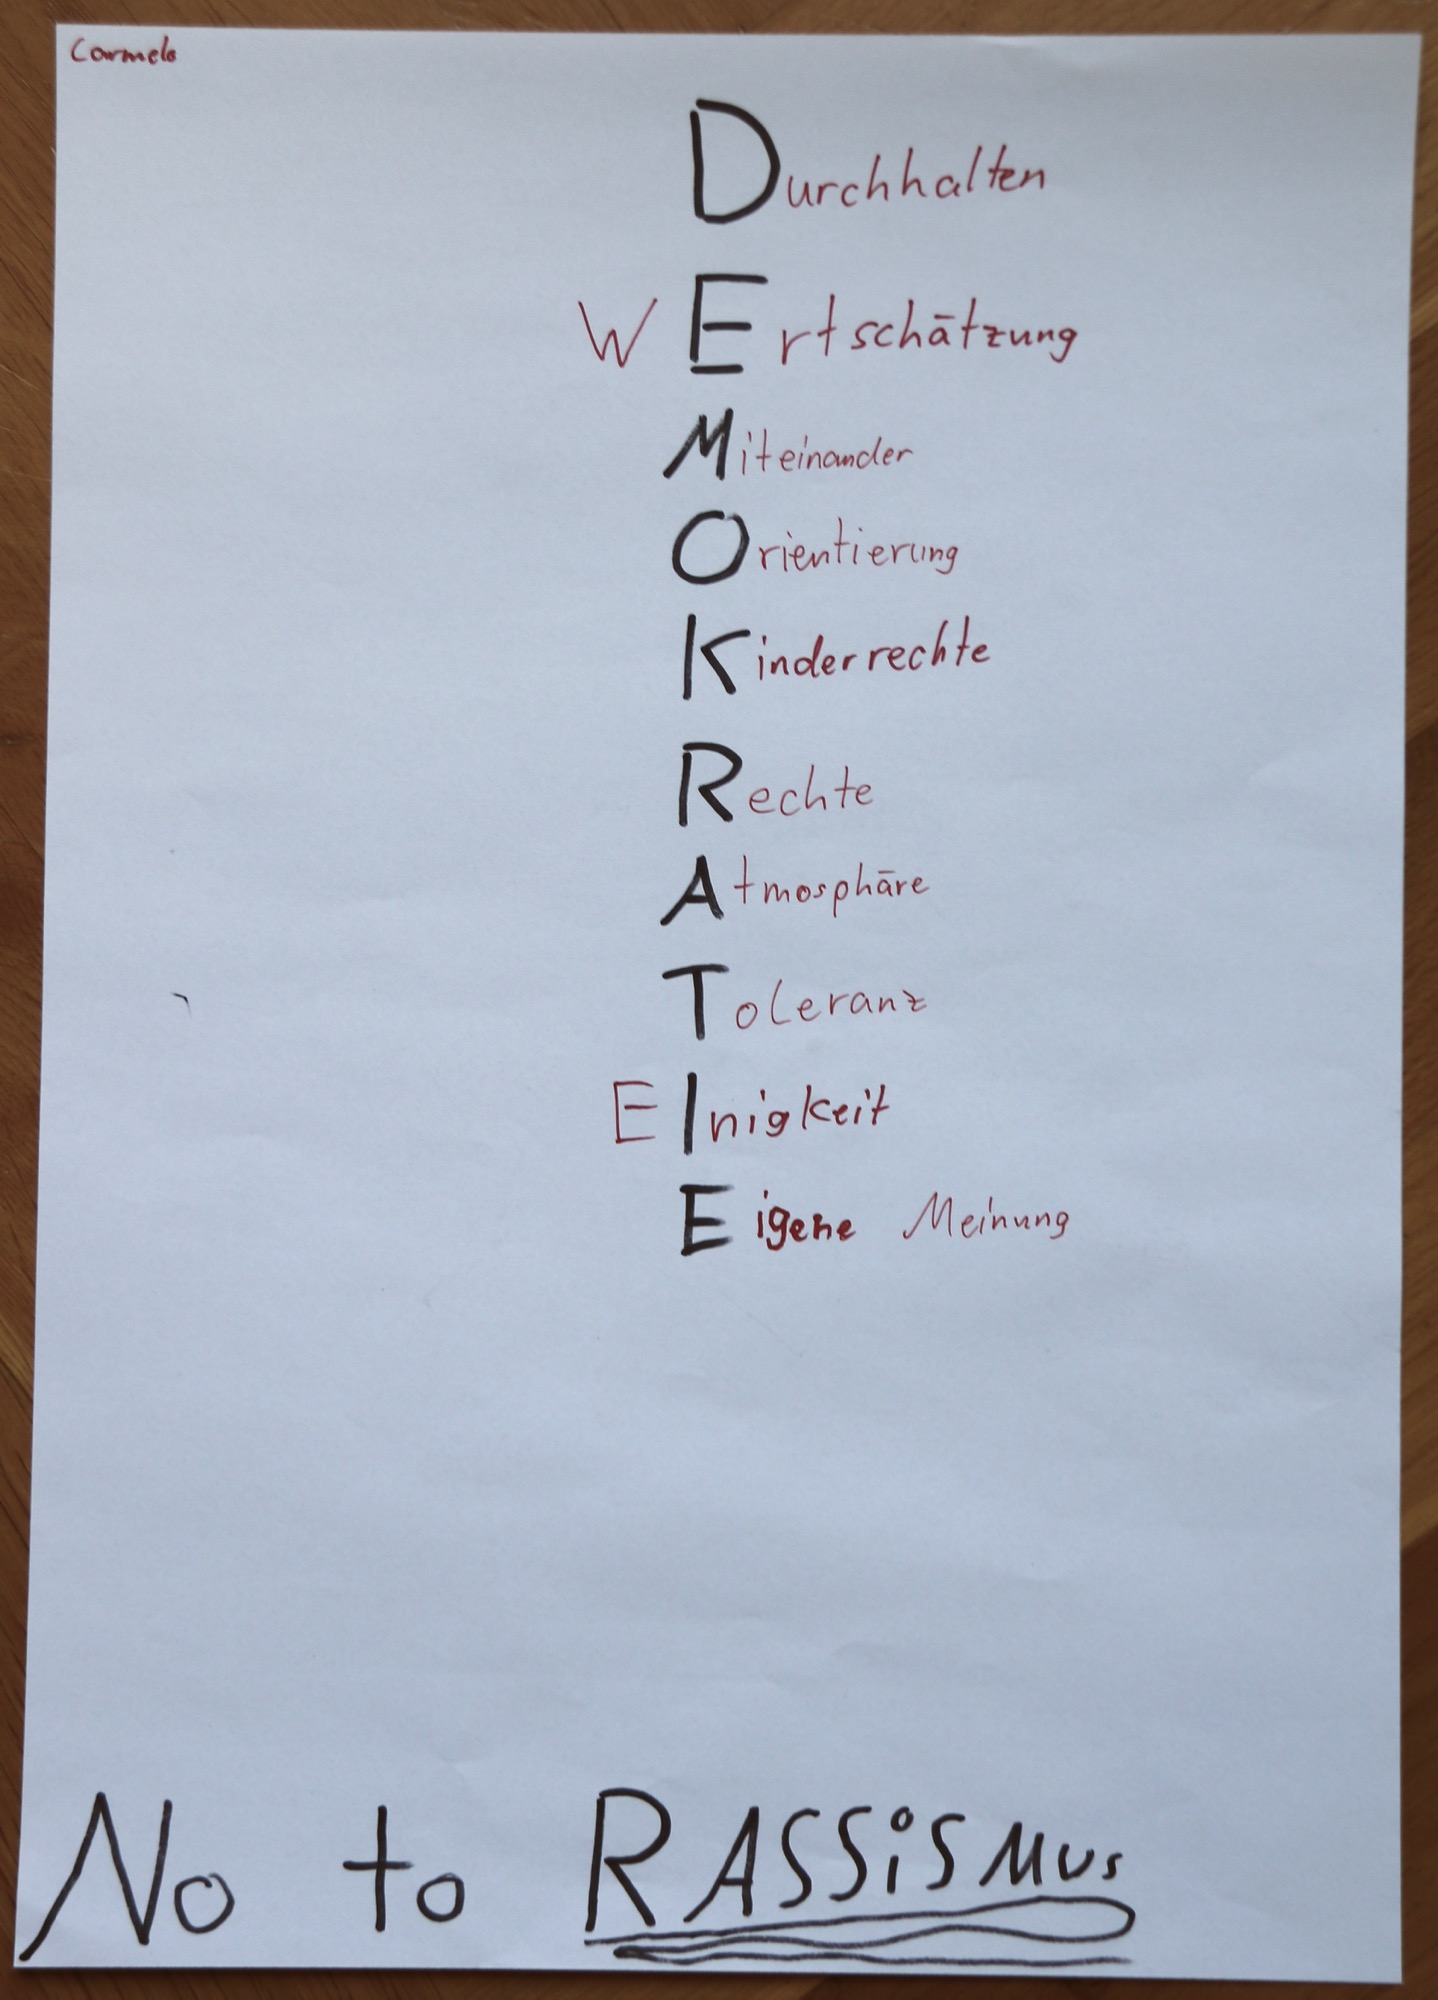 Carmelo
Durchhalten
WErtschätzung
Miteinander
Orientierung
Kinderrechte
Rechte
Atmosphäre
Toleranz
EInigkeit
Eigene Meinung
No to RASSiSMus